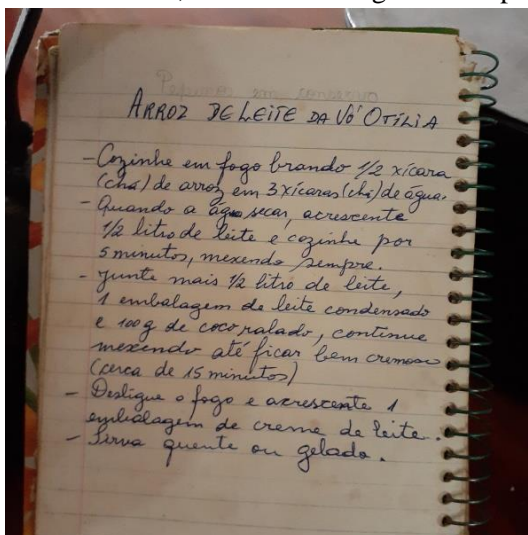 Pepinos em conserva
ARROZ DE LEITE DA VÓ OTÍLIA
- Cozinhe em fogo brando 1/2 xícara
(chá) de arroz em 3 xícaras (chá) de água.
- Quando a água secar, acrescente
1/2 litro de leite e cozinhe por
5 minutos, mexendo sempre.
- Junte mais 1/2 litro de leite,
1 embalagem de leite condensado
e 100g de coco ralado, continue
mexendo até ficar bem cremoso
(cerca de 15 minutos)
- Desligue o fogo e acrescente 1
embalagem de creme de leite.
- Sirva quente ou gelado.